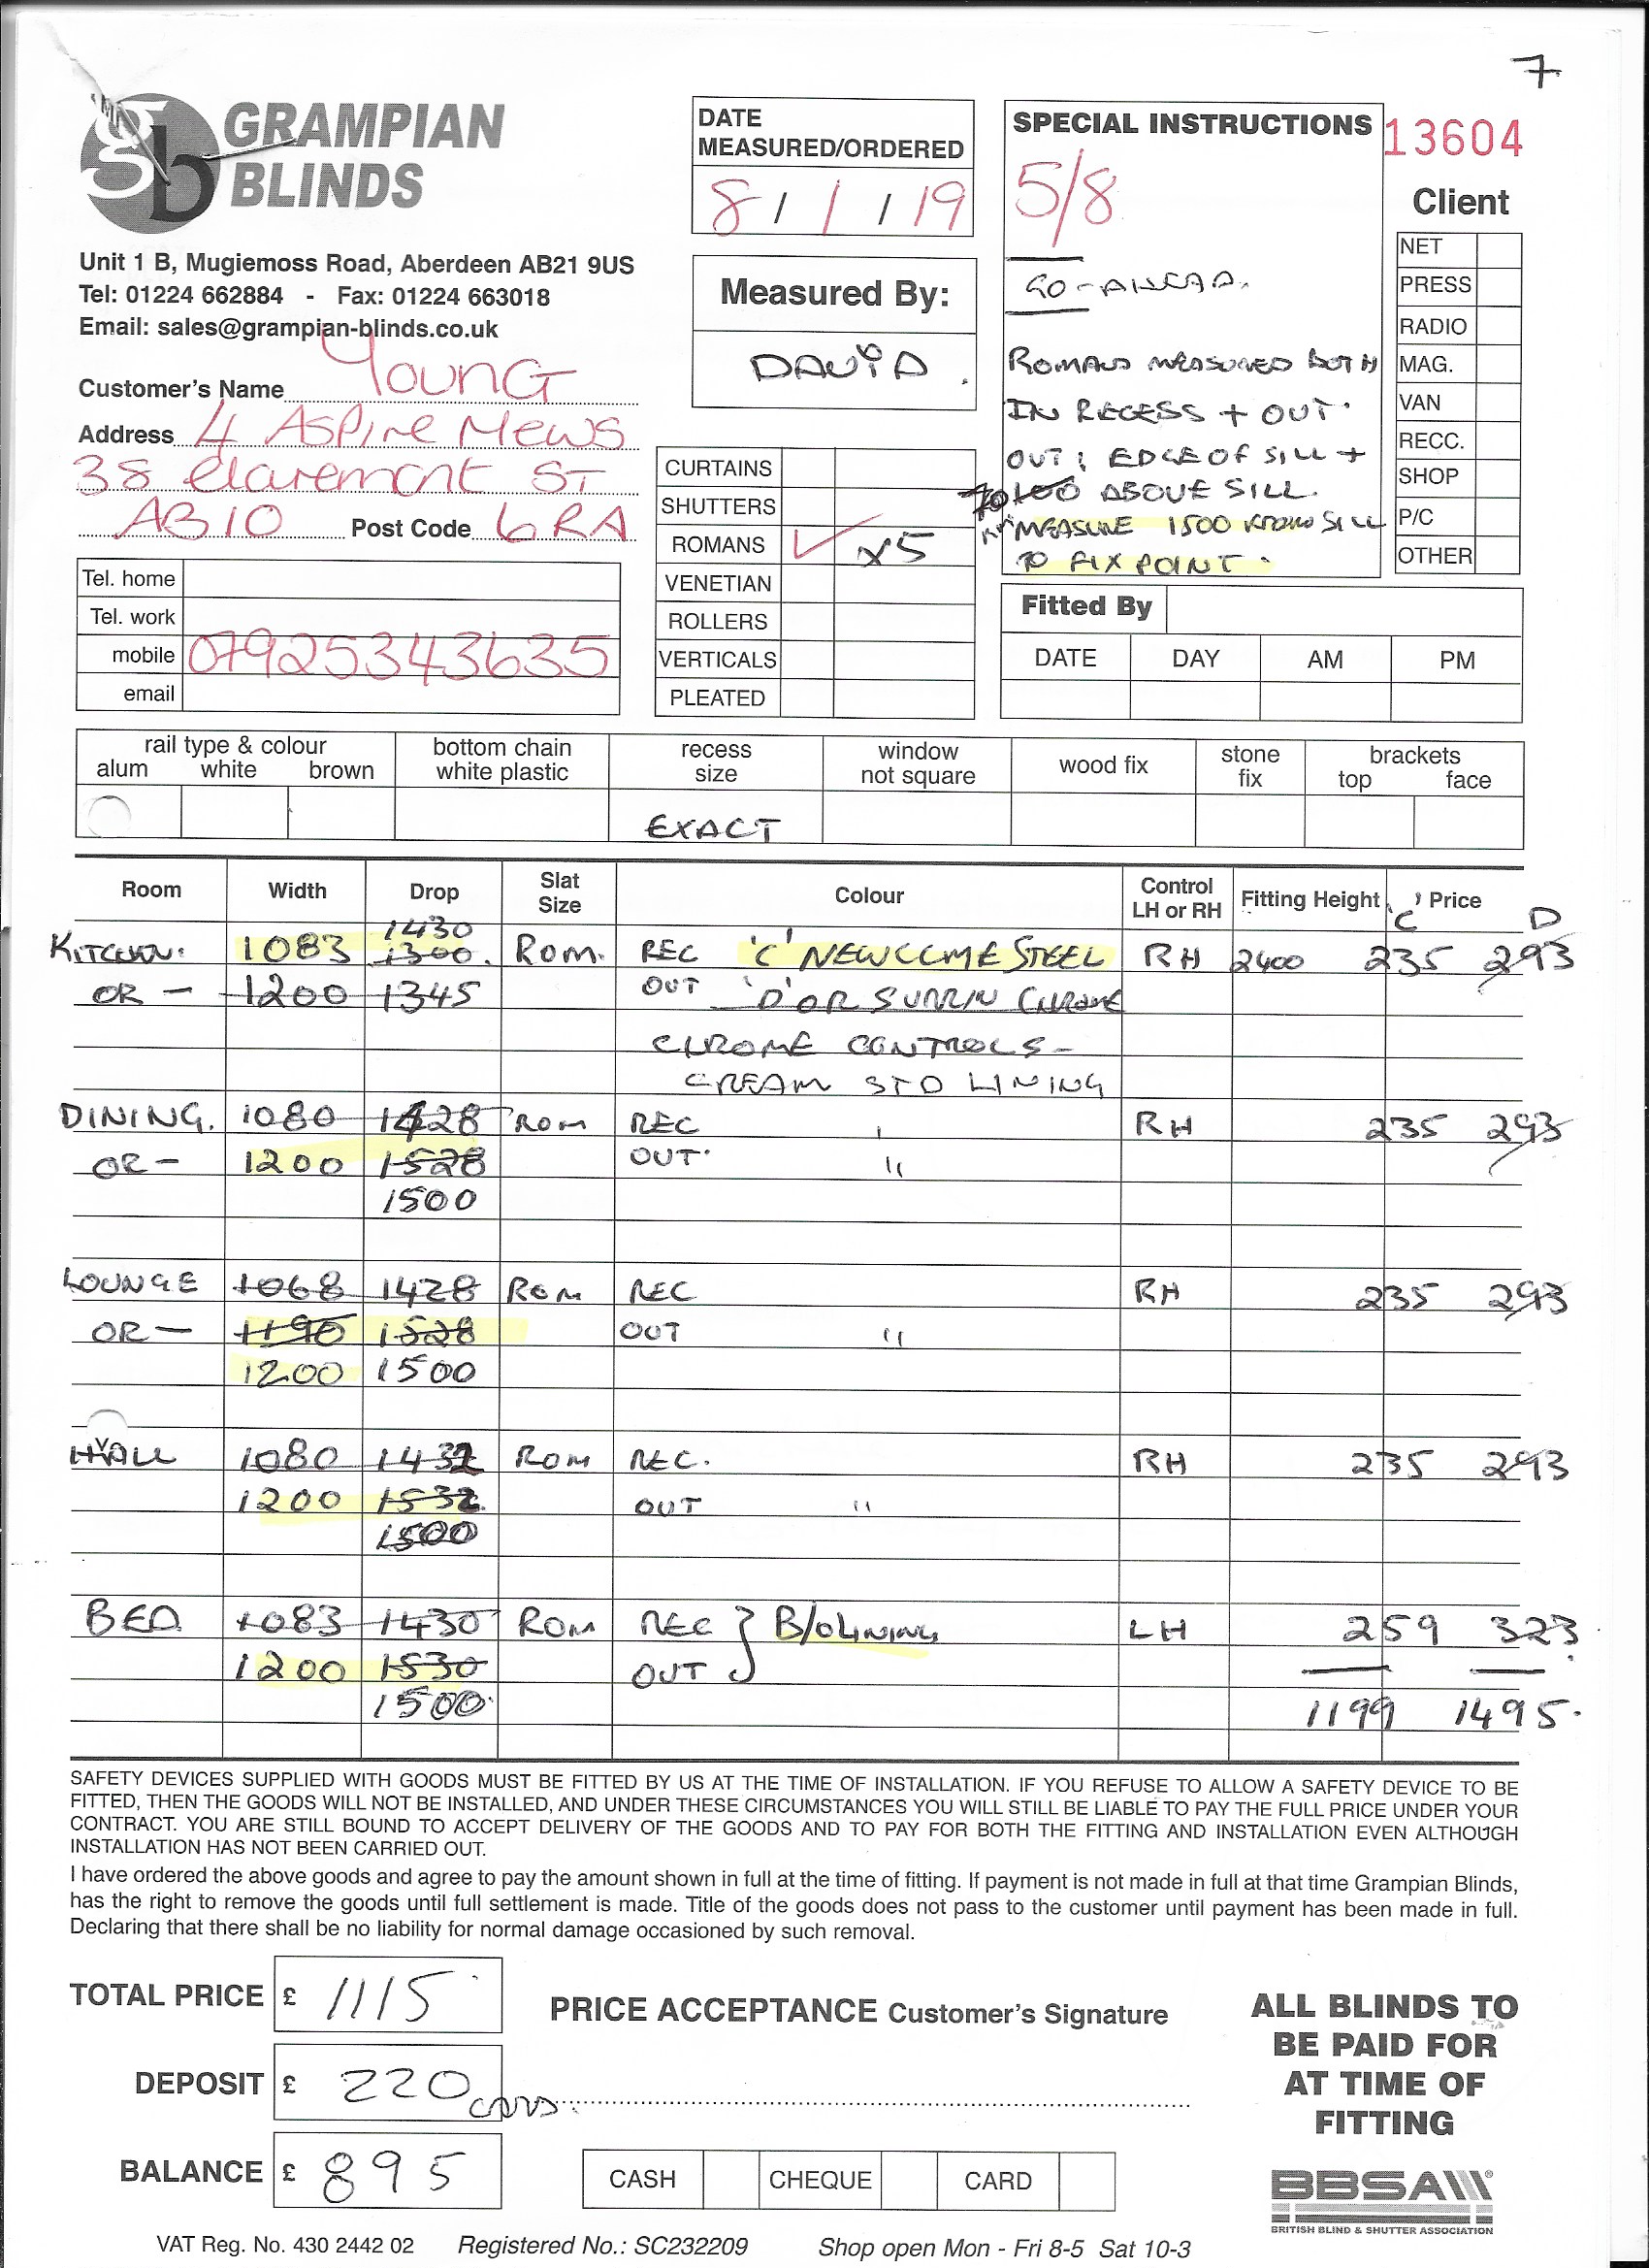 7
GRAMPIAN
BLINDS
Unit 1 B, Mugiemoss Road, Aberdeen AB21 9US
Tel: 01224 662884 - Fax: 01224 663018
Email: sales@grampian-blinds.co.uk
Customer's Name Young
Address 4 Aspire Mews
38 Claremont ST
AB10 Post Code 6RA
Tel. home
Tel. work
mobile 07925343635
email
DATE
MEASURED/ORDERED
8/1/19
Measured By:
DAVID.
CURTAINS
SHUTTERS
ROMANS ✓ x5
VENETIAN
ROLLERS
VERTICALS
PLEATED
SPECIAL INSTRUCTIONS
5/8
GO-AHEAD.
ROMANS MEASURED BOTH
IN RECESS + OUT.
OUT: EDGE OF SILL +
70 100 ABOVE SILL.
MEASURE 1500 FROM SILL
TO FIX POINT.
13604
Client
NET
PRESS
RADIO
MAG.
VAN
RECC.
SHOP
P/C
OTHER
Fitted By
DATE DAY AM PM
rail type & colour
alum white brown
bottom chain
white plastic
recess
size
window
not square
wood fix
stone
fix
brackets
top face
EXACT
Room Width Drop Slat Size Colour Control LH or RH Fitting Height Price
C D
1430
KITCHEN: 1083 1300. ROM. REC 'C' NEWCOME STEEL RH 2400 235 293
OR - 1200 1345 OUT 'D' OR SURRIN CHROME
CHROME CONTROLS -
CREAM STD LINING
DINING. 1080 1428 ROM REC RH 235 293
OR - 1200 1528 OUT. "
1500
LOUNGE 1068 1428 ROM REC RH 235 293
OR - 1190 1528 OUT "
1200 1500
HALL 1080 1432 ROM REC. RH 235 293
1200 1532 OUT "
1500
BED 1083 1430 ROM REC } B/O LINING LH 259 323
1200 1530 OUT
1500. 1199 1495.
SAFETY DEVICES SUPPLIED WITH GOODS MUST BE FITTED BY US AT THE TIME OF INSTALLATION. IF YOU REFUSE TO ALLOW A SAFETY DEVICE TO BE
FITTED, THEN THE GOODS WILL NOT BE INSTALLED, AND UNDER THESE CIRCUMSTANCES YOU WILL STILL BE LIABLE TO PAY THE FULL PRICE UNDER YOUR
CONTRACT. YOU ARE STILL BOUND TO ACCEPT DELIVERY OF THE GOODS AND TO PAY FOR BOTH THE FITTING AND INSTALLATION EVEN ALTHOUGH
INSTALLATION HAS NOT BEEN CARRIED OUT.
I have ordered the above goods and agree to pay the amount shown in full at the time of fitting. If payment is not made in full at that time Grampian Blinds,
has the right to remove the goods until full settlement is made. Title of the goods does not pass to the customer until payment has been made in full.
Declaring that there shall be no liability for normal damage occasioned by such removal.
TOTAL PRICE £ 1115
DEPOSIT £ 220 CARD.
BALANCE £ 895
PRICE ACCEPTANCE Customer's Signature
CASH CHEQUE CARD
ALL BLINDS TO
BE PAID FOR
AT TIME OF
FITTING
BBSA
BRITISH BLIND & SHUTTER ASSOCIATION
VAT Reg. No. 430 2442 02 Registered No.: SC232209 Shop open Mon - Fri 8-5 Sat 10-3